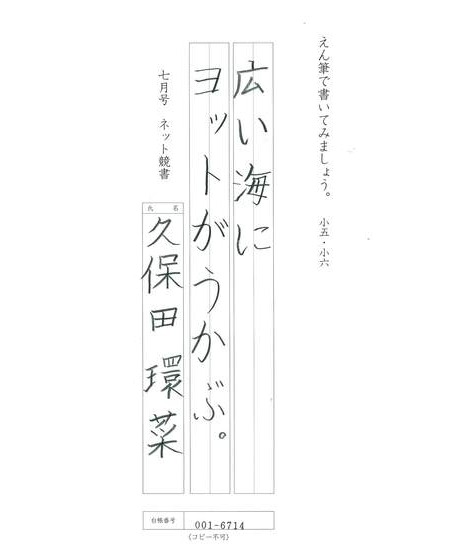 えん筆で書いてみましょう。 小五・小六
広い海に
ヨットがうかぶ。
七月号 ネット競書
氏名
久保田環菜
台帳番号 001-6714
(コピー不可)